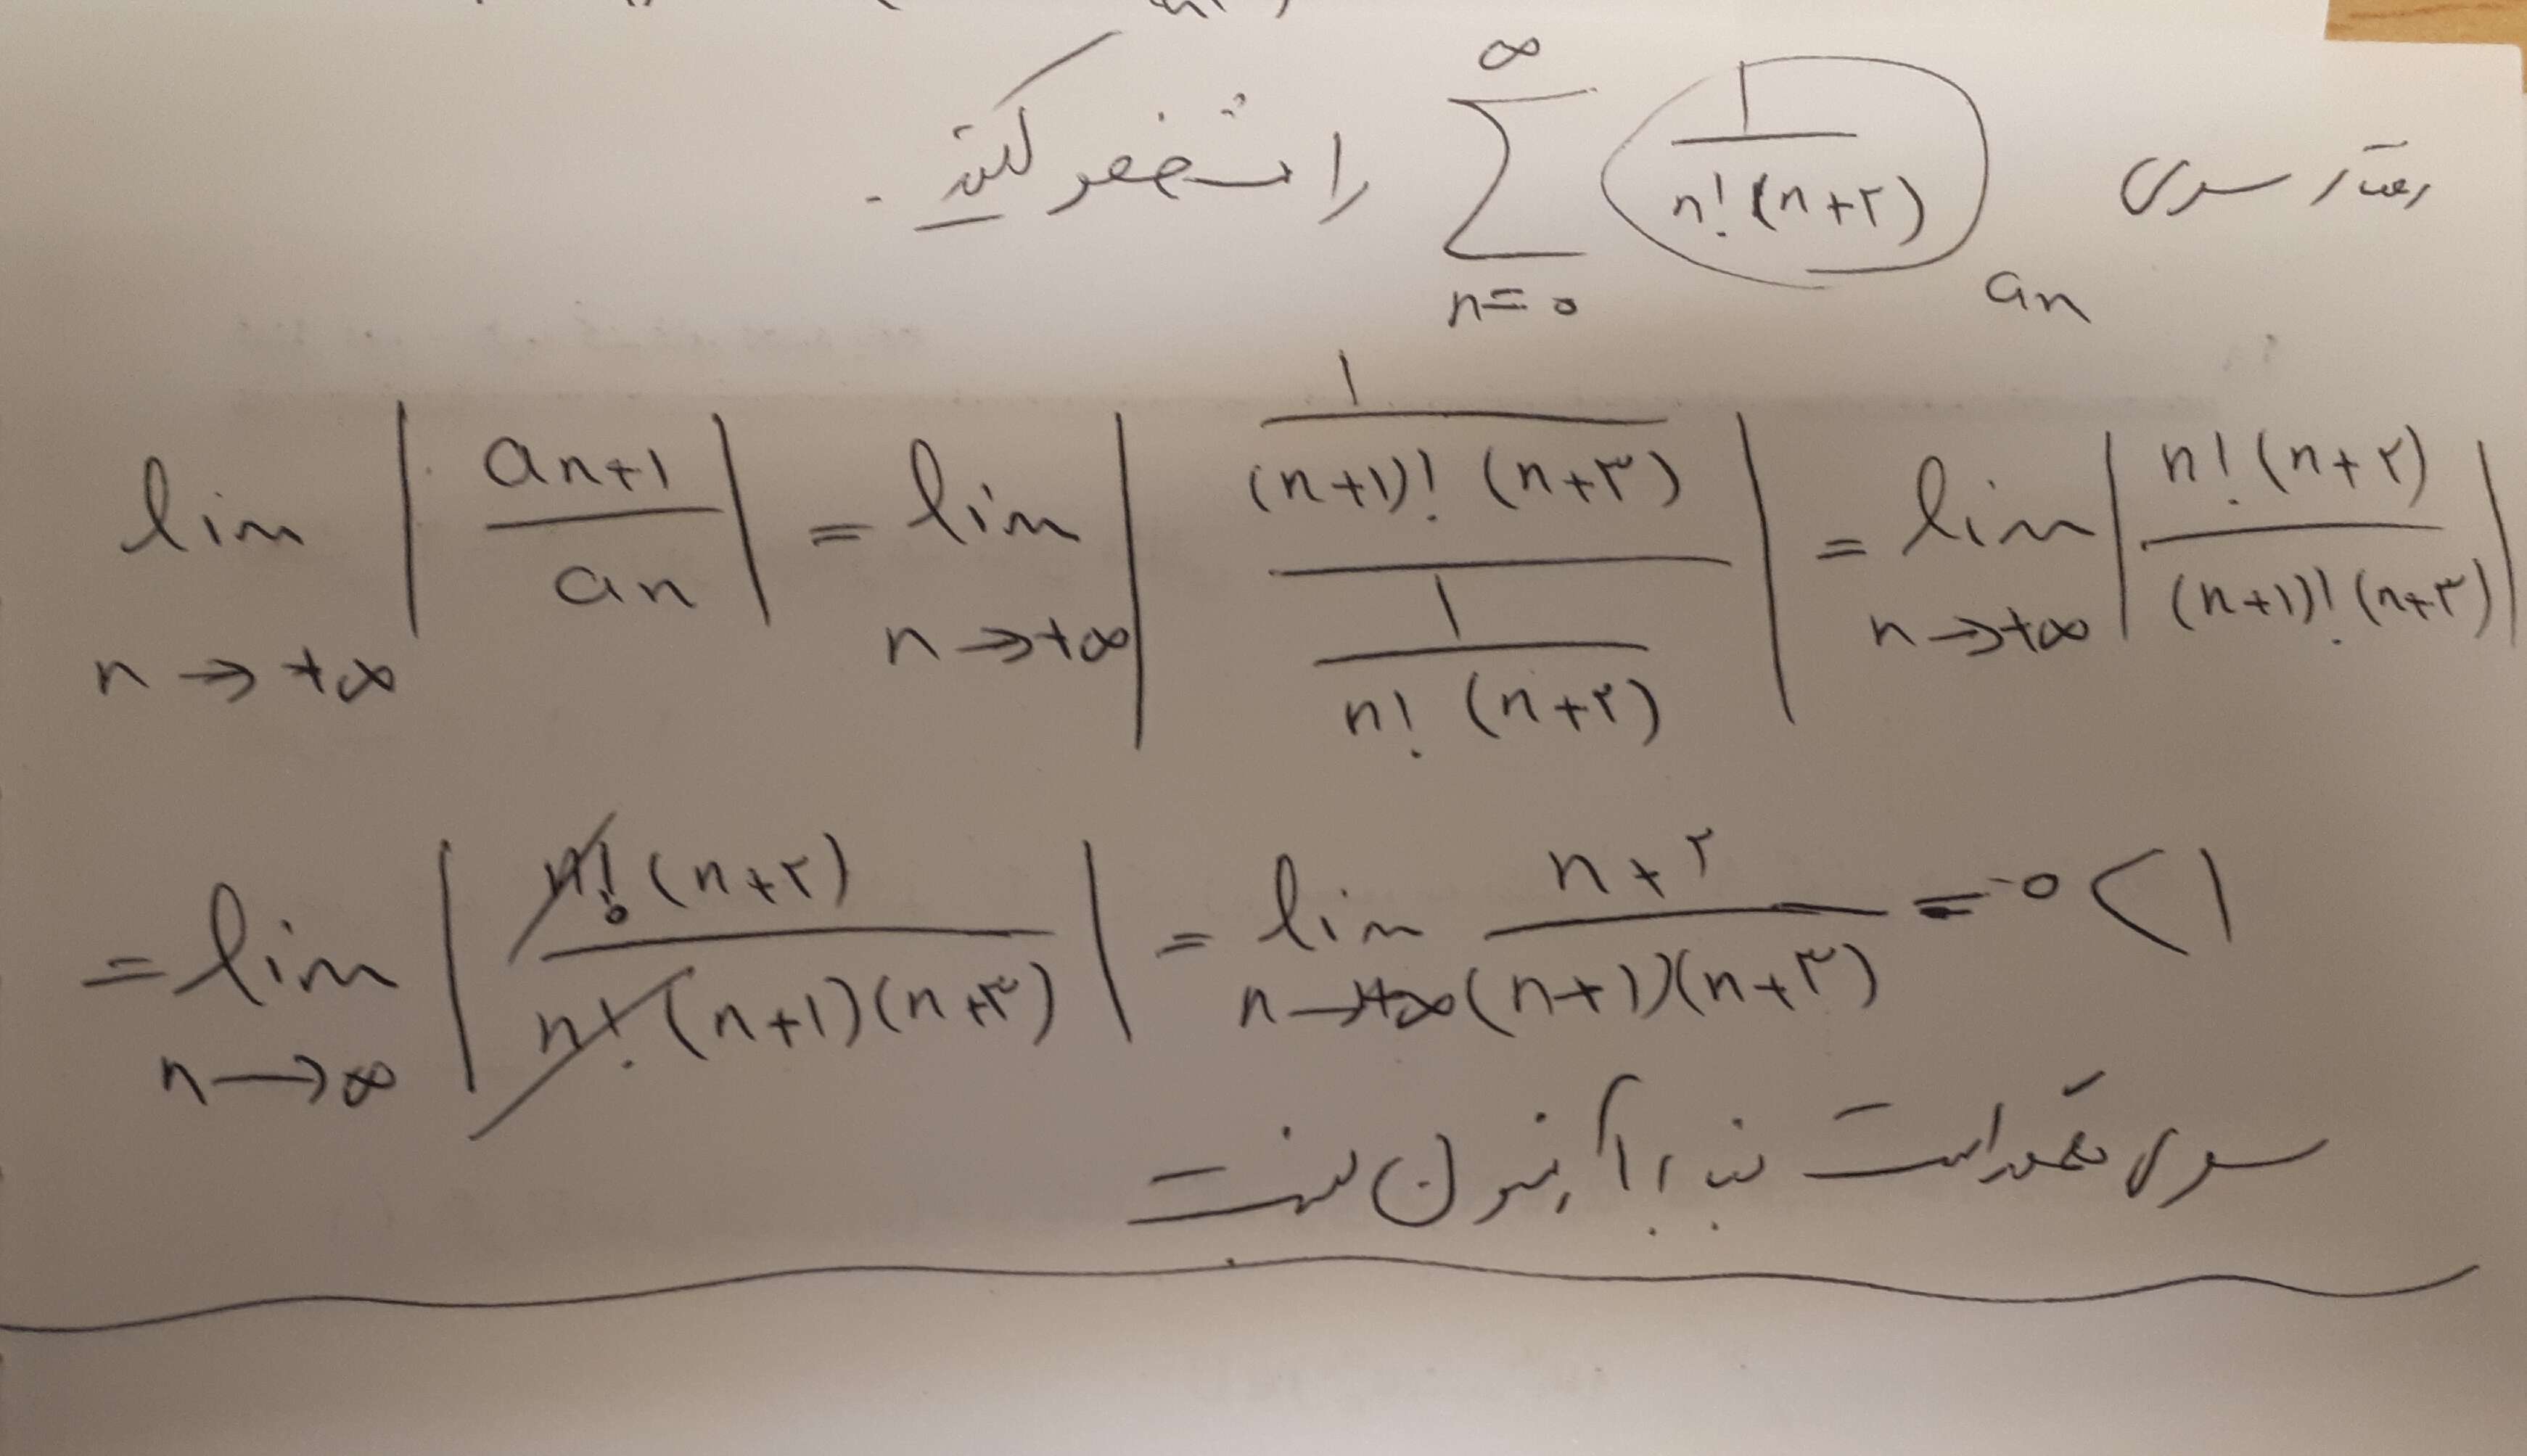 رفتار سری \sum_{n=0}^{\infty} \frac{1}{n!(n+۲)} را مشخص کنید.
an
\lim_{n \to +\infty} \left| \frac{a_{n+1}}{a_n} \right| = \lim_{n \to +\infty} \left| \frac{\frac{1}{(n+1)!(n+۳)}}{\frac{1}{n!(n+۲)}} \right| = \lim_{n \to +\infty} \left| \frac{n!(n+۲)}{(n+1)!(n+۳)} \right|
= \lim_{n \to \infty} \left| \frac{n!(n+۲)}{n!(n+1)(n+۳)} \right| = \lim_{n \to +\infty} \frac{n+۲}{(n+1)(n+۳)} = 0 < 1
سری همگراست بنا بر آزمون نسبت